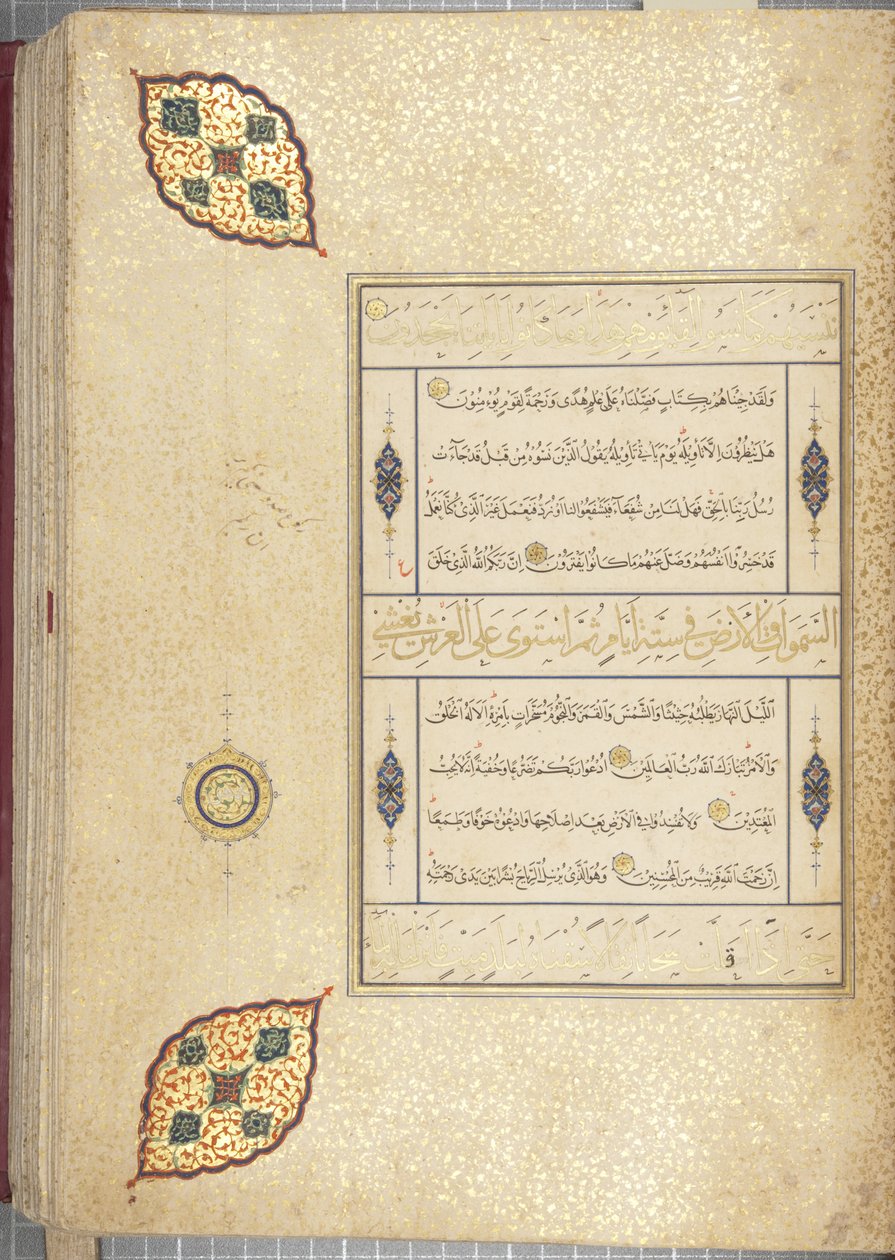 نَنْسَيهُمْ كَمَا نَسُوا لِقَاءَ يَوْمِهِمْ هَذَا وَمَا كَانُوا بِايَاتِنَا يَجْحَدُونَ
وَلَقَدْ جِئْنَاهُمْ بِكِتَابٍ فَصَّلْنَاهُ عَلَى عِلْمٍ هُدًى وَرَحْمَةً لِقَوْمٍ يُؤْمِنُونَ
هَلْ يَنْظُرُونَ اِلَّا تَأْوِيلَهُ يَوْمَ يَأْتِي تَأْوِيلُهُ يَقُولُ الَّذِينَ نَسُوهُ مِنْ قَبْلُ قَدْ جَآءَتْ
رُسُلُ رَبِّنَا بِالْحَقِّ فَهَلْ لَنَا مِنْ شُفَعَآءَ فَيَشْفَعُوا لَنَا اَوْ نُرَدُّ فَنَعْمَلَ غَيْرَ الَّذِي كُنَّا نَعْمَلُ
قَدْ خَسِرُوا اَنْفُسَهُمْ وَضَلَّ عَنْهُمْ مَا كَانُوا يَفْتَرُونَ اِنَّ رَبَّكُمُ اللَّهُ الَّذِي خَلَقَ
ع
السَّمَوَاتِ وَالْاَرْضَ فِي سِتَّةِ اَيَّامٍ ثُمَّ اسْتَوَى عَلَى الْعَرْشِ يُغْشِي
اللَّيْلَ النَّهَارَ يَطْلُبُهُ حَثِيثًا وَالشَّمْسَ وَالْقَمَرَ وَالنُّجُومَ مُسَخَّرَاتٍ بِاَمْرِهِ اَلَا لَهُ الْخَلْقُ
وَالْاَمْرُ تَبَارَكَ اللَّهُ رَبُّ الْعَالَمِينَ اُدْعُوا رَبَّكُمْ تَضَرُّعًا وَخُفْيَةً اِنَّهُ لَا يُحِبُّ
الْمُعْتَدِينَ وَلَا تُفْسِدُوا فِي الْاَرْضِ بَعْدَ اِصْلَاحِهَا وَادْعُوهُ خَوْفًا وَطَمَعًا
اِنَّ رَحْمَتَ اللَّهِ قَرِيبٌ مِنَ الْمُحْسِنِينَ وَهُوَ الَّذِي يُرْسِلُ الرِّيَاحَ بُشْرًا بَيْنَ يَدَيْ رَحْمَتِهِ
حَتَّى اِذَا اَقَلَّتْ سَحَابًا ثِقَالًا سُقْنَاهُ لِبَلَدٍ مَيِّتٍ فَاَنْزَلْنَا بِهِ الْمَاءَ